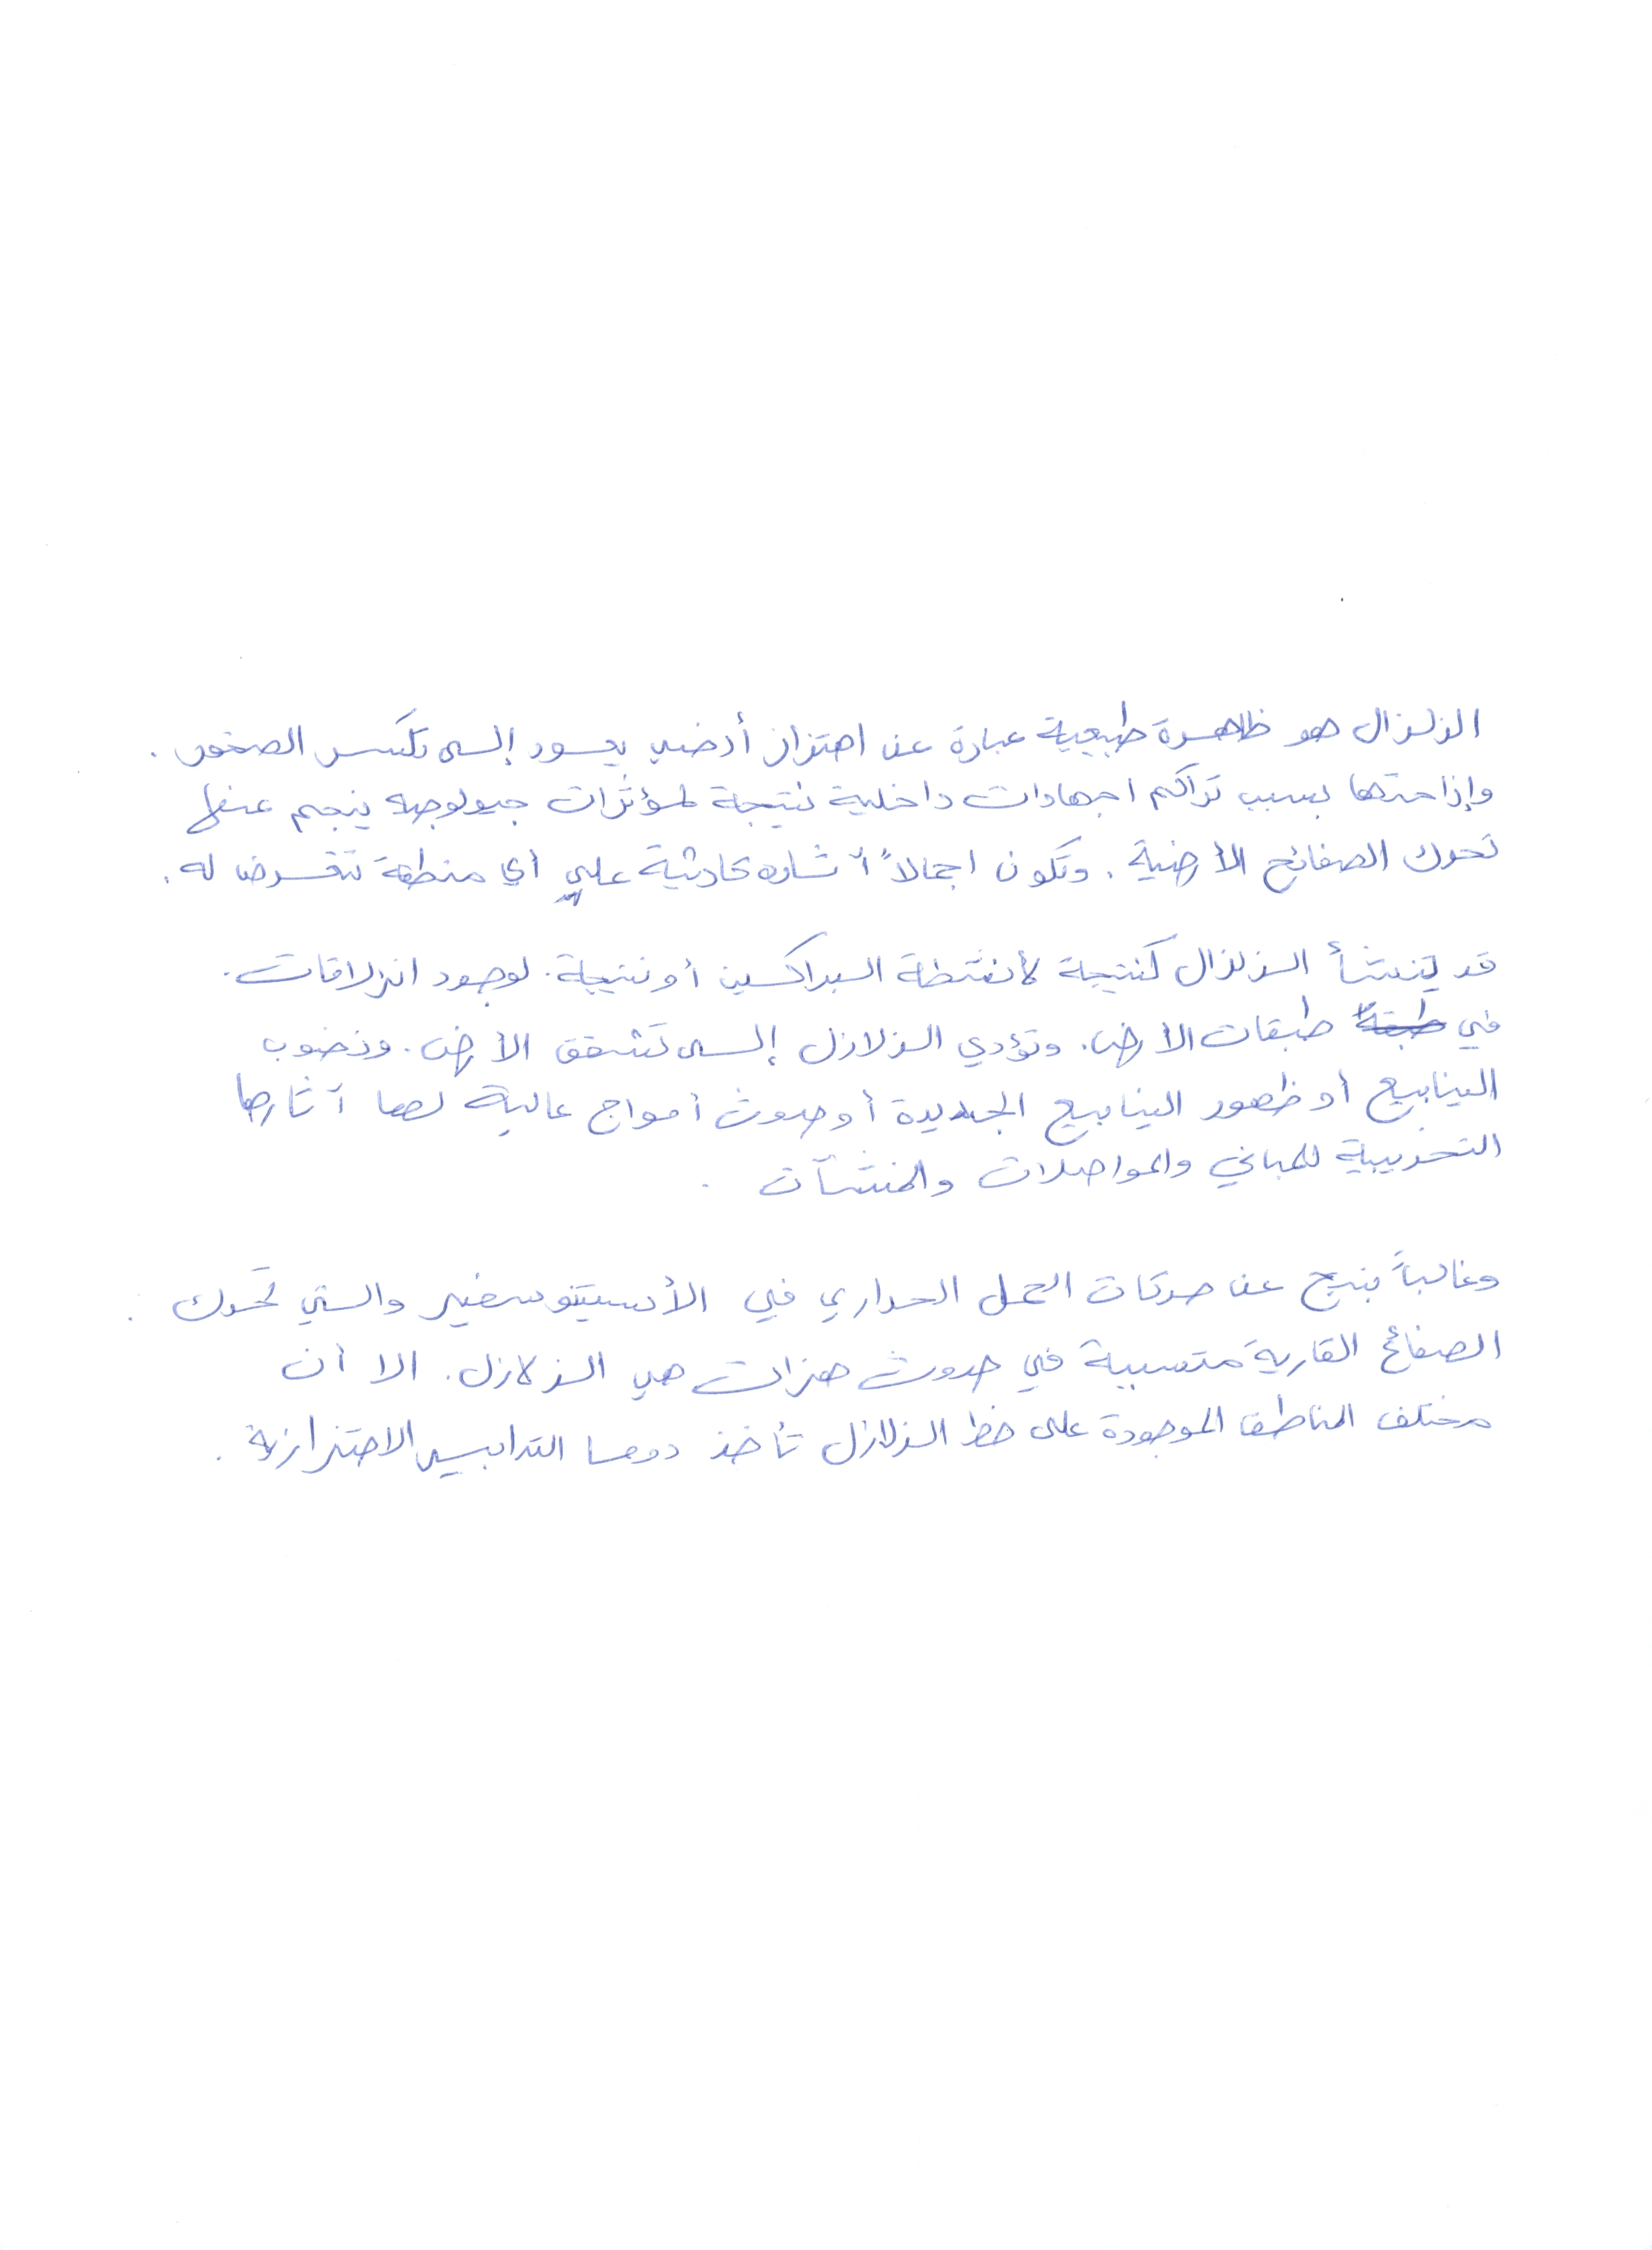 الزلزال هو ظاهرة طبيعية عبارة عن اهتزاز أرضي يعود إلى تكسر الصخور .
وإزاحتها بسبب تراكم اجهادات داخلية نتيجة لمؤثرات جيولوجية ينجم عنها
تحرك الصفائح الأرضية . وتكون اجمالاً آثاره كارثية على أي منطقة تتعرض له .
قد ينشأ الزلزال كنتيجة لأنشطة البراكين أو نتيجة . لوجود انزلاقات .
في طبقات الأرض . وتؤدي الزلازل إلى تشقق الأرض . ونضوب
الينابيع أو ظهور الينابيع الجديدة أو حدوث أمواج عالية لها آثارها
التخريبية للمباني والمواصلات والمنشآت .
وغالباً ينتج عن حركات الحمل الحراري في الأسيتنوسفير والتي تحرك .
الصفائح القارية متسببة في حدوث هزات هي الزلازل . الا أن
مختلف المناطق الموجودة على خط الزلازل تأخذ دوما التدابير الاحترازية .